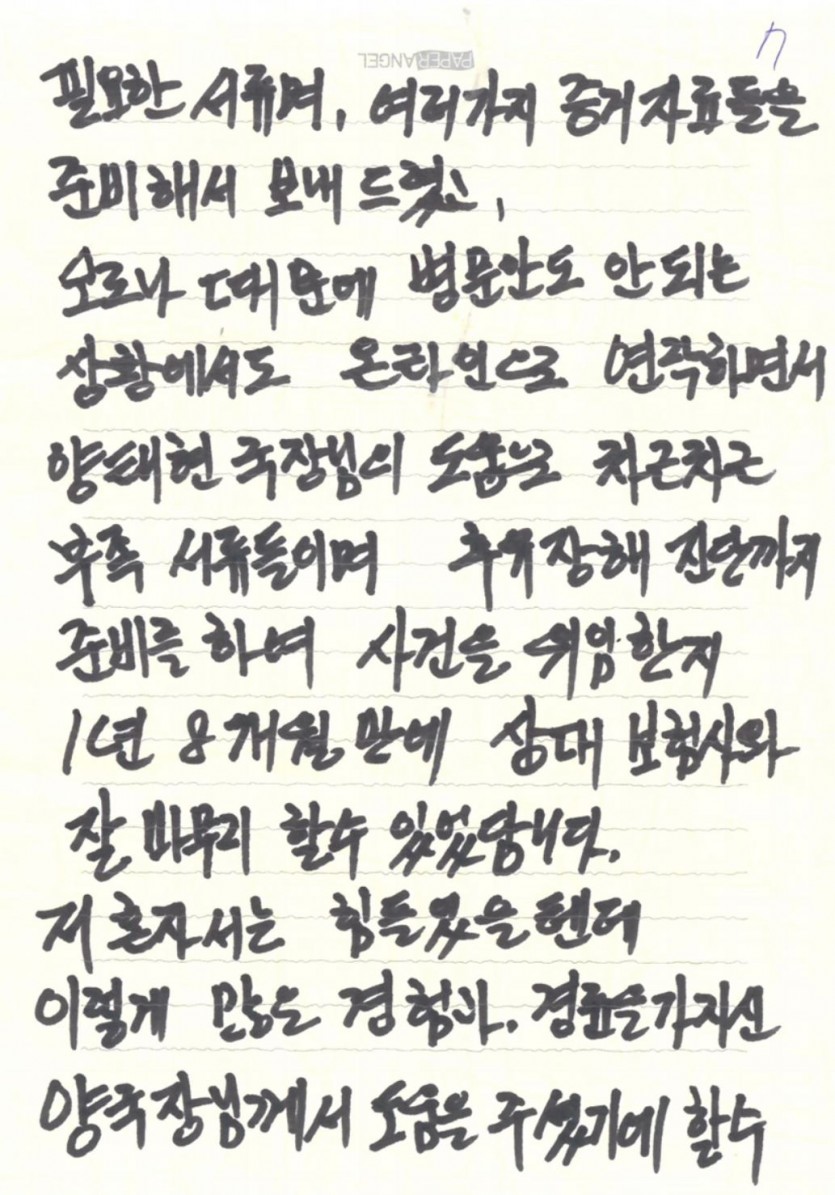 PAPER ANGEL
필요한 서류며, 여러가지 증거자료들을
준비해서 보내 드렸고,
코로나 때문에 병문안도 안되는
상황에서도 온라인으로 연락하면서
양태현 국장님의 도움으로 차근차근
부족 서류들이며 후유장해 진단까지
준비를 하여 사건을 위임한지
1년 8개월만에 상대 보험사와
잘 마무리 할수 있었답니다.
저 혼자서는 힘들었을텐데
이렇게 많은 경험과, 경륜을가지신
양국장님께서 도움을 주셨기에 할수